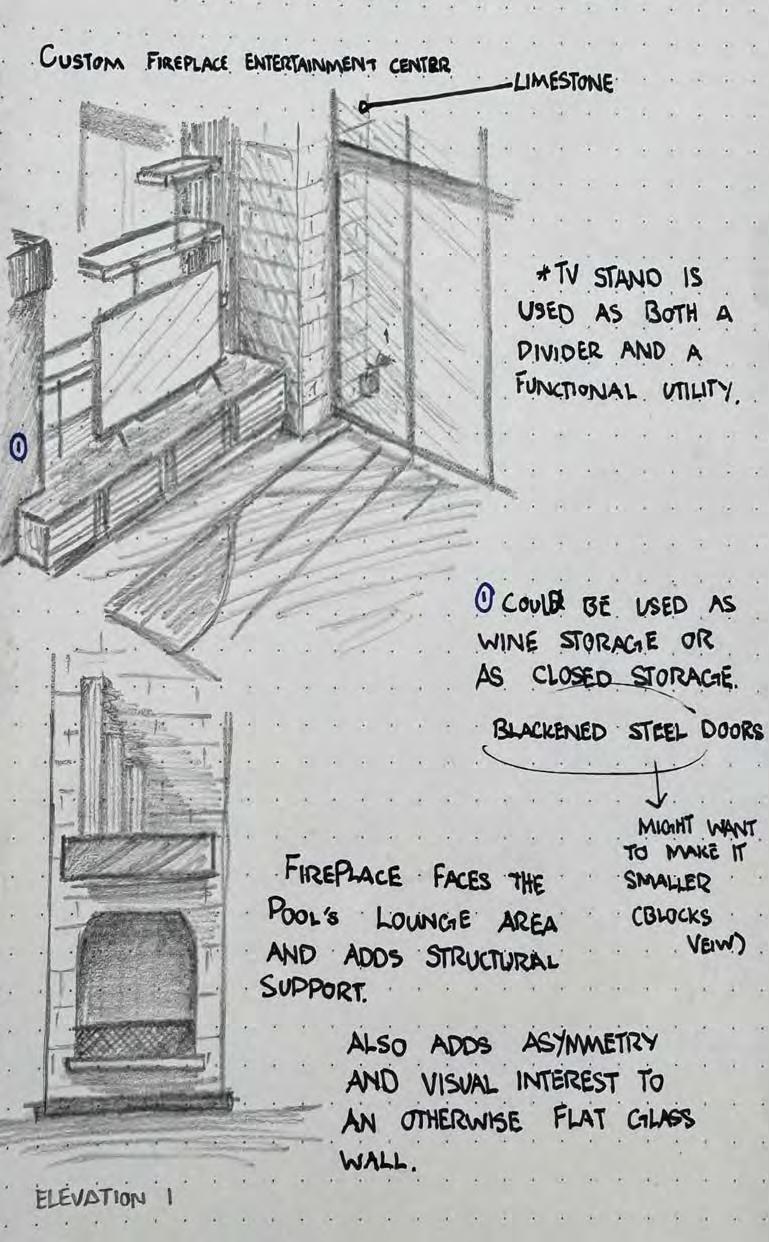 CUSTOM FIREPLACE ENTERTAINMENT CENTER
LIMESTONE
*TV STAND IS
USED AS BOTH A
DIVIDER AND A
FUNCTIONAL UTILITY.
1
1 COULD BE USED AS
WINE STORAGE OR
AS CLOSED STORAGE.
BLACKENED STEEL DOORS
MIGHT WANT
TO MAKE IT
SMALLER
(BLOCKS
VEIW)
FIREPLACE FACES THE
POOL'S LOUNGE AREA
AND ADDS STRUCTURAL
SUPPORT.
ALSO ADDS ASYMMETRY
AND VISUAL INTEREST TO
AN OTHERWISE FLAT GLASS
WALL.
ELEVATION 1